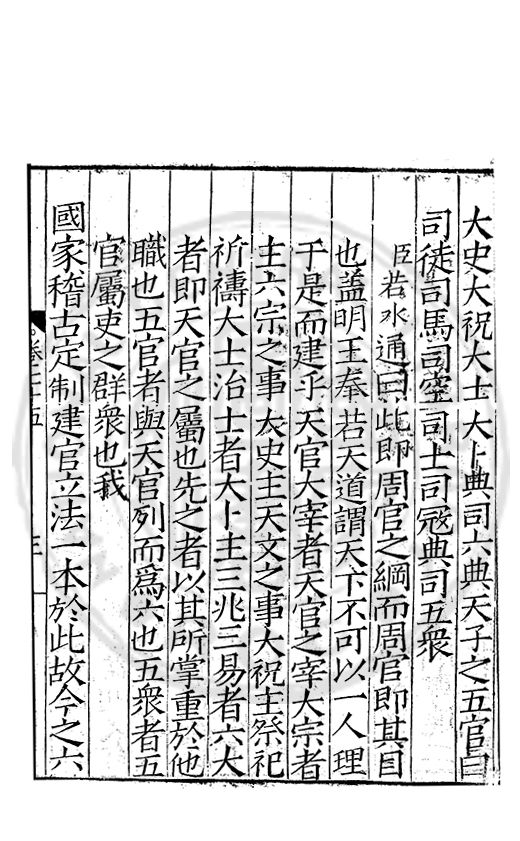 大史大祝大士大卜典司六典天子之五官曰
司徒司馬司空司士司冦典司五衆
臣若水通曰此即周官之綱而周官即其目
也蓋明王奉若天道謂天下不可以一人理
于是而建乎天官大宰者天官之宰大宗者
主六宗之事大史主天文之事大祝主祭祀
祈禱大士治士者大卜主三兆三易者六大
者即天官之屬也先之者以其所掌重於他
職也五官者與天官列而爲六也五衆者五
官屬吏之群衆也我
國家稽古定制建官立法一本於此故今之六
三